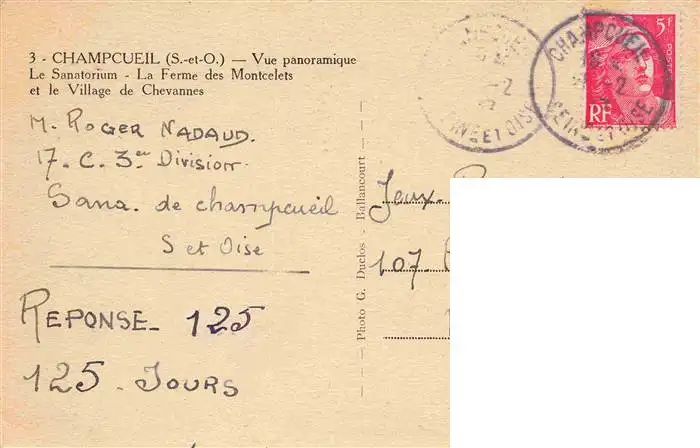 3 - CHAMPCUEIL (S.-et-O.) — Vue panoramique
Le Sanatorium - La Ferme des Montcelets
et le Village de Chevannes
M. ROGER NADAUD.
17. C. 3er Division.
Sana. de champcueil
S et Oise
REPONSE - 125
125 - JOURS
Photo G. Duclos - Ballancourt
Jeux.
107.
CHAMPCUEIL
2
SEINE ET OISE
INE ET OISE
2
5f
POSTES
RF